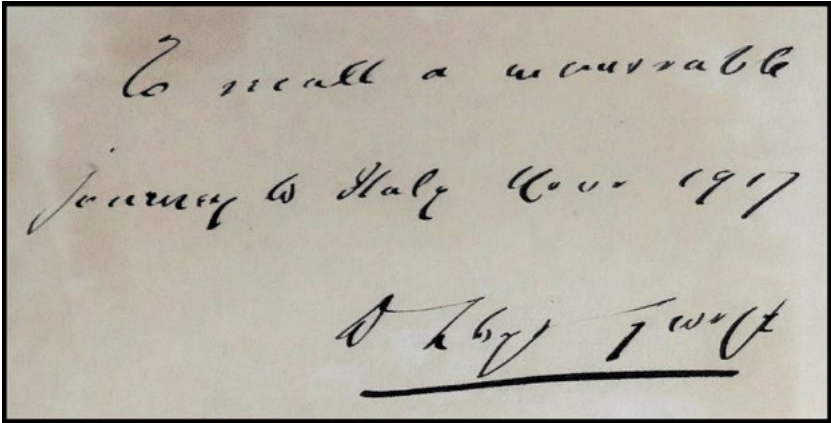 To recall a memorable
journey to Italy Novr 1917
D Lloyd George